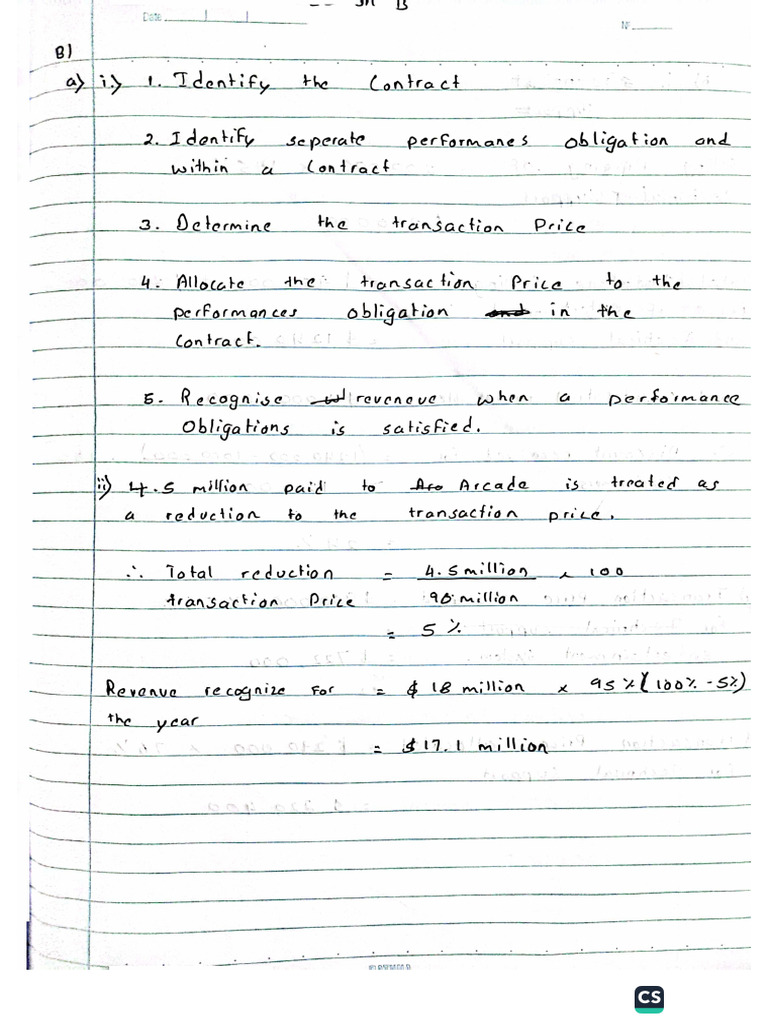 B
Date
No
B)
a) i.) 1. Identify the Contract
2. Identify seperate performanes obligation and
within a Contract
3. Determine the transaction Price
4. Allocate the transaction Price to the
performances obligation and in the
Contract.
5. Recognise reveneve when a performance
Obligations is satisfied.
ii) 4.5 million paid to Aro Arcade is treated as
a reduction to the transaction price.
∴ Total reduction = 4.5 million x 100
transaction Price 90 million
= 5 %
Revenue recognize for = $ 18 million x 95 % (100% - 5%)
the year
= $ 17.1 million
CS